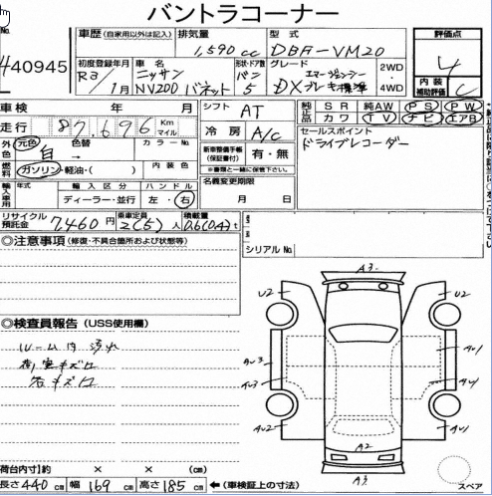 バントラコーナー
No.
440945
車歴 (自家用以外は記入)
排気量
1,590 cc
型式
DBA-VM20
評価点
4
初度登録年月
R3/1月
車名
ニッサン
NV200 バネット
形状・ドア数
バン
5
グレード
エマージェンシー
DX ブレーキ標準
2WD
4WD
内装
補助評価
C
車検 年 月
シフト AT
純 S R 純AW P S P W
品 カワ T V ナビ エアB
走行 87,696 Km
マイル
冷房 A/c
セールスポイント
ドライブレコーダー
外色 元色 白 色替 カラーNo
ガソリン・軽油・( ) 内装色
新車整備手帳
(保証書付)
有・無
※書類と一緒に保管下さい。
輸入車用 年式 輸入区分 ハンドル
ディーラー・並行 左・右
名義変更期限
月 日
リサイクル
預託金
7,460 円
乗車定員
2(5) 人
積載量
0.6(0.4) t
シリアルNo
◎注意事項 (修復・不具合箇所および状態等)
◎検査員報告 (USS使用欄)
ルーム内 汚れ
A3
U2
U2
AU3
AU3
AU2
AU1
AU1
AU1
A2
A3
スペア
荷台内寸法 約 × × (cm)
長さ 440 cm 幅 169 cm 高さ 185 cm ←(車検証上の寸法)